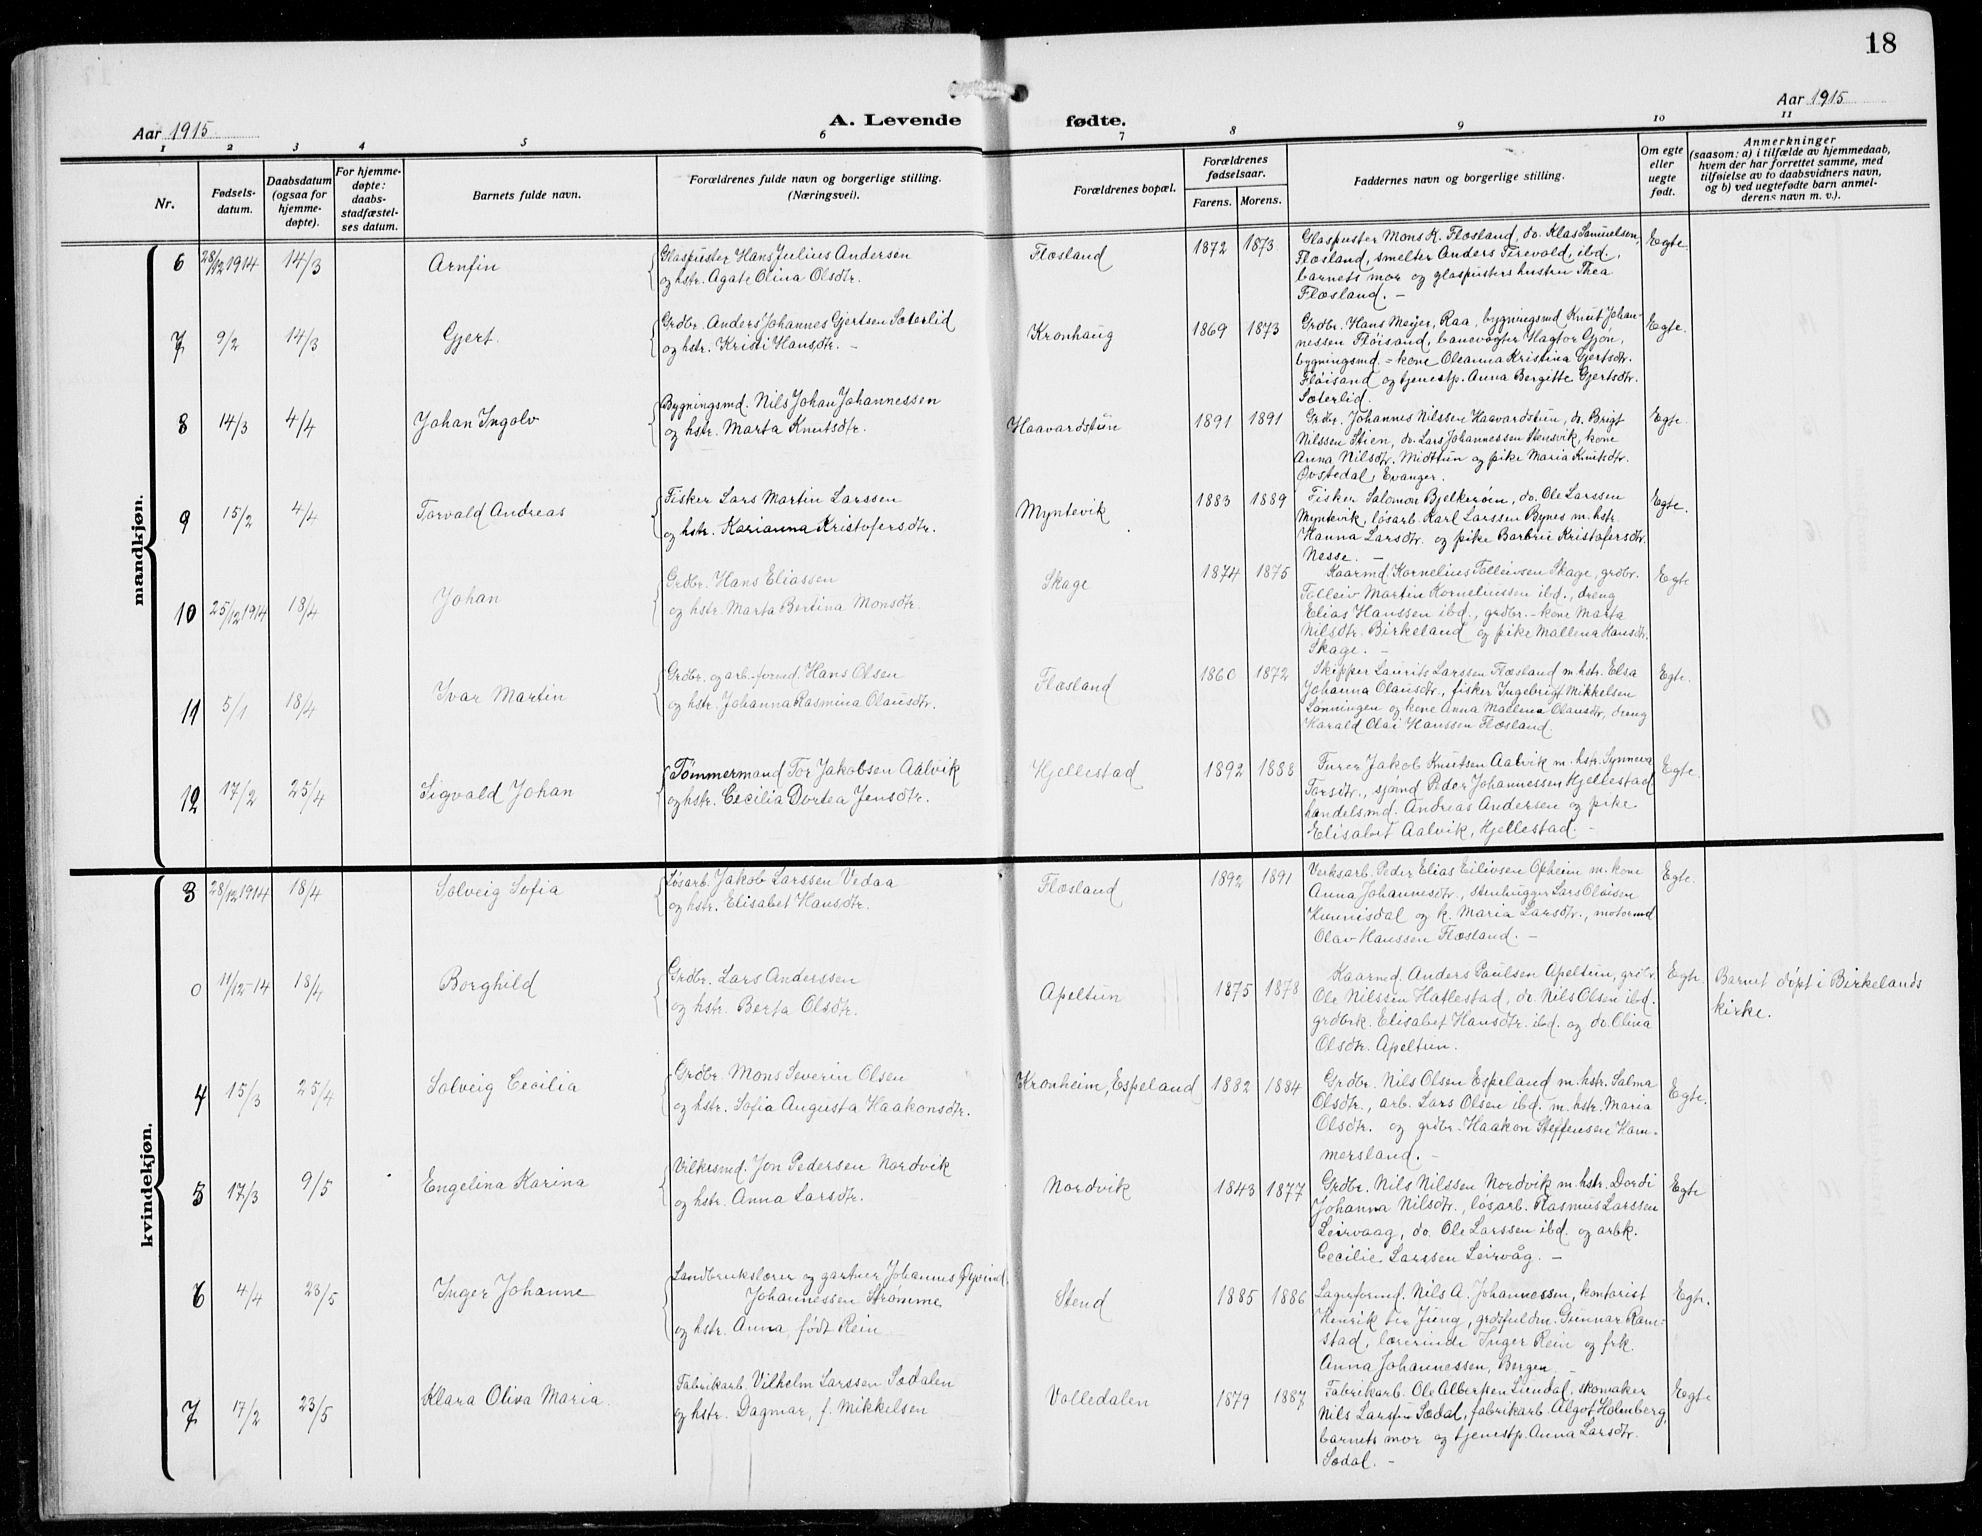 18
Aar 1915
A. Levende fødte.
Aar 1915
1 2 3 4 5 6 7 8 9 10 11
Nr.
Fødsels-
datum.
Daabsdatum
(ogsaa for
hjemme-
døpte).
For hjemme-
døpte:
daabs-
stadfæstel-
ses datum.
Barnets fulde navn.
Forældrenes fulde navn og borgerlige stilling.
(Næringsvei).
Forældrenes bopæl.
Forældrenes
fødselsaar.
Farens. Morens.
Faddernes navn og borgerlige stilling.
Om egte
eller
uegte
født.
Anmerkninger
(saasom: a) i tilfælde av hjemmedaab,
hvem der har forrettet samme, med
tilføielse av to daabsvidners navn,
og b) ved uegtefødte barn anmel-
derens navn m. v.).
mandkjøn.
6 28/12 1914 14/3 Arnfin
Glaspuster Hans Julius Andersen
og hstr. Agate Olina Olsdtr.
Flæsland 1872 1873
Glaspuster Mons K. Flæsland, do. Klas Samuelsen,
Flæsland, smelter Anders Tirevald, ibd.,
barnets mor og glaspusters hustru Thea
Flæsland. –
Egte
7 9/2 14/3 Gjert.
Grdbr. Anders Johannes Gjertsen Sæterlid
og hstr. Kristi Hansdtr. –
Kronhaug 1869 1873
Grdbr. Hans Meyer, Raa, bygningsmd Knut Johan-
nessen Fløisand, banevogter Hagtor Gjøn,
bygningsmd. = kone Oleanna Kristina Gjertsdtr.
Fløisand og tjenestp. Anna Bergitte Gjertsdtr.
Sæterlid.
Egte.
8 14/3 4/4 Johan Ingolv
Bygningsmd. Nils Johan Johannessen
og hstr. Marta Knutsdtr.
Haavardstun 1891 1891
Grdbr. Johannes Nilssen Haavardstun, do. Brigt
Nilssen Stien, do. Lars Johannessen Stensvik, kone
Anna Nilsdtr. Midttun og pike Maria Knutsdtr.
Øvstedal, Evanger.
Egte.
9 15/2 4/4 Torvald Andreas
Fisker Lars Martin Larssen
og hstr. Karianna Kristofersdtr.
Myntevik 1883 1889
Fisker Salomon Bjelkerøen, do. Ole Larssen
Myntevik, løsarb. Karl Larssen Bynes m. hstr.
Hanna Larsdtr. og pike Barbrii Kristofersdtr.
Nesse. –
Egte.
10 25/12 1914 18/4 Johan
Grdbr. Hans Eliassen
og hstr. Marta Bertina Monsdtr.
Skage 1874 1875
Kaarmd. Kornelius Tolleivsen Skage, grdbr.
Tolleiv Martin Korneliussen ibd., dreng
Elias Hanssen ibd., grdbr. – kone Marta
Nilsdtr. Birkeland og pike Mallena Hansdtr.
Skage. –
Egte
11 5/1 18/4 Ivar Martin
Grdbr. og arb.-formd. Hans Olsen
og hstr. Johanna Rasmina Olausdtr.
Flæsland 1860 1872
Skipper Laurits Larssen Flæsland m. hstr. Elsa
Johanna Olausdtr., fisker Ingebrigt Mikkelsen
Lønningen og kone Anna Mallena Olausdtr, dreng
Harald Olai Hanssen Flæsland.
Egte.
12 17/2 25/4 Sigvald Johan
Tømmermand Tor Jakobsen Aalvik
og hstr. Cecilia Dortea Jensdtr.
Hjellestad 1892 1888
Furer Jakob Knutsen Aalvik m. hstr. Synneva
Torsdtr., sjømd Peder Johannessen Hjellestad
handelsmd. Andreas Andersen og pike
Elisabet Aalvik, Hjellestad. –
Egte.
kvindekjøn.
3 28/12 1914 18/4 Solveig Sofia
Løsarb. Jakob Larssen Vedaa
og hstr. Elisabet Hansdtr.
Flæsland 1892 1891
Verksarb. Peder Elias Eilivsen Opheim m. kone
Anna Johannesdtr., stenhugger Lars Olaisen
Kunnisdal og k. Maria Larsdtr., motormd
Olav Hanssen Flæsland. –
Egte.
0 11/12-14 18/4 Borghild
Grdbr. Lars Anderssen
og hstr. Berta Olsdtr.
Apeltun 1875 1878
Kaarmd. Anders Paulsen Apeltun, grdbr.
Ole Nilssen Hatlestad, do. Nils Olsen ibd.
grdbrk. Elisabet Hansdtr. ibd. og do. Olina
Olsdtr. Apeltun.
Egte.
Barnet døpt i Birkelands
kirke.
4 15/3 25/4 Solveig Cecilia
Grdbr. Mons Severin Olsen
og hstr. Sofia Augusta Haakonsdtr.
Kronheim, Espeland 1882 1884
Grdbr. Nils Olsen Espeland m. hstr. Salma
Olsdtr., arb. Lars Olsen ibd. m. hstr. Maria
Olsdtr. og grdbr. Haakon Steffensen Ham-
mersland. –
Egte.
5 17/3 9/5 Engelina Karina
Vilkrsmd. Jon Pedersen Nordvik
og hstr. Anna Larsdtr.
Nordvik 1843 1877
Grdbr. Nils Nilssen Nordvik m. hstr. Dordi
Johanna Nilsdtr., løsarb. Rasmus Larssen
Leirvaag, do. Ole Larssen ibd. og arbk.
Cecilie Larssen Leirvåg. –
Egte
6 4/4 23/5 Inger Johanne
Landbrukslærer og gartner Johannes Øyvind
Johannessen Strømme
og hstr. Anna, født Rein
Stend 1885 1886
Lagerformd. Nils A. Johannessen, kontorist
Henrik ter Jung, grdsfuldm. Gunnar Ram-
stad, lærerinde Inger Rein og frk.
Anna Johannessen, Bergen. –
Egte.
7 17/2 23/5 Klara Oliva Maria.
Fabrikarb. Vilhelm Larssen Sædalen
og hstr. Dagmar, f. Mikkelsen
Valledalen 1879 1887
Fabrikarb. Ole Albertsen Liendal, skomaker
Nils Larssen Sædal, fabrikarb. Algot Holmberg,
barnets mor og tjenestp. Anna Larsdtr.
Sædal. –
Egte